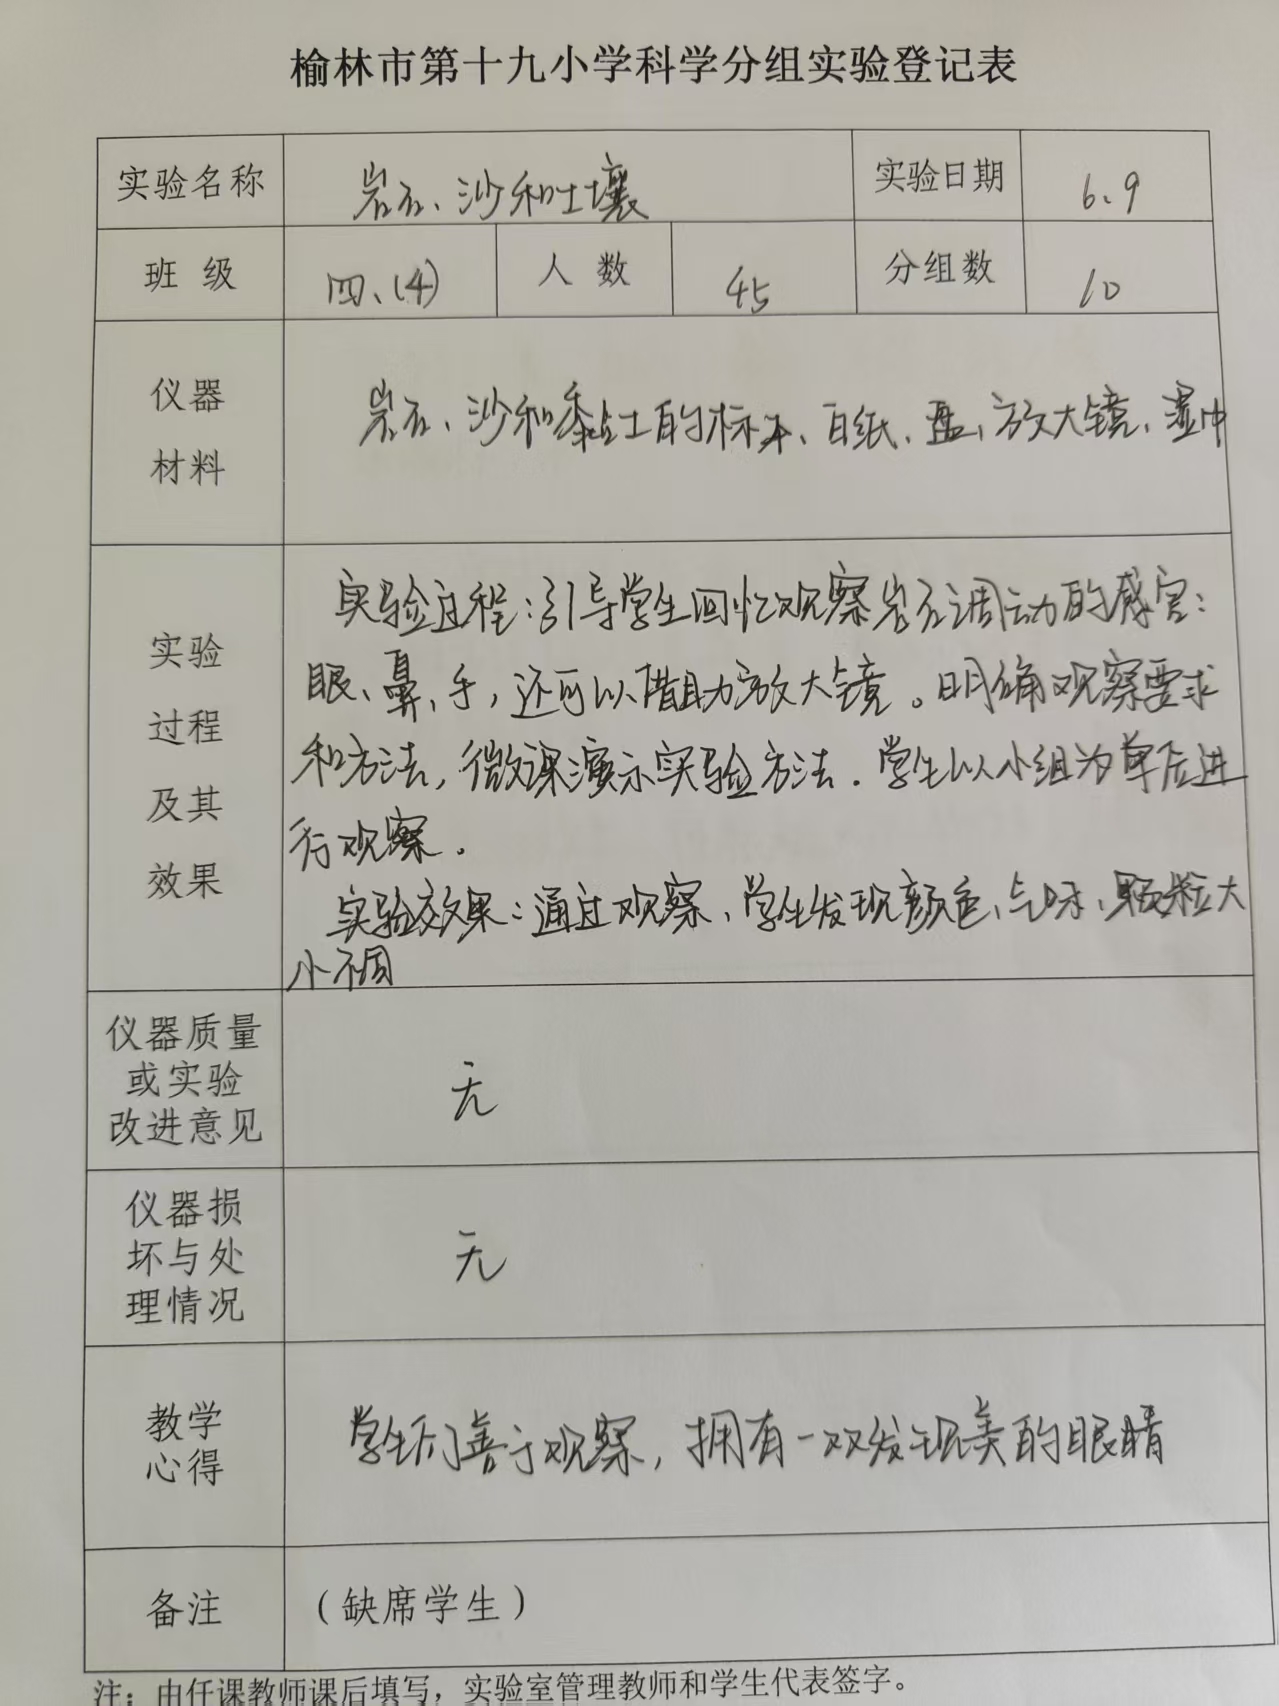 榆林市第十九小学科学分组实验登记表
实验名称 岩石、沙和土壤 实验日期 6.9
班 级 四、(4) 人 数 45 分组数 10
仪器
材料
岩石、沙和黏土的标本、白纸、盘、放大镜、湿巾
实验
过程
及其
效果
实验过程:引导学生回忆观察岩石调动的感官:
眼、鼻、手,还可以借助放大镜。明确观察要求
和方法,微课演示实验方法.学生以小组为单位进
行观察。
实验效果:通过观察,学生发现颜色、气味、颗粒大
小不同
仪器质量
或实验
改进意见
无
仪器损
坏与处
理情况
无
教学
心得
学生们善于观察,拥有一双发现美的眼睛
备注 (缺席学生)
注:由任课教师课后填写,实验室管理教师和学生代表签字。